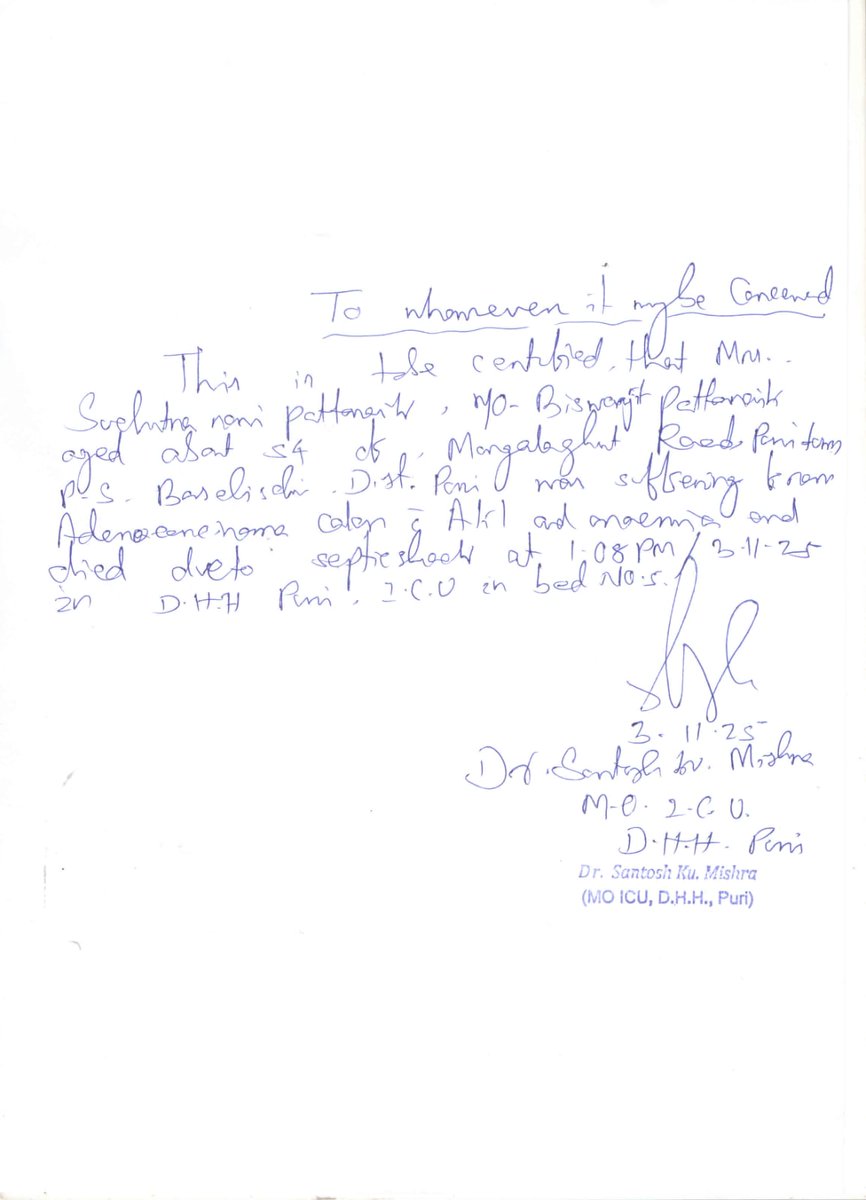 To whomever it maybe Concerned
This is to be certified that Mrs.
pattanaik, W/O- Biswajit Pattanaik
aged about 54 of, Mangalaghat Road Puri town
P.S. Baselisahi. Dist. Puri was suffering from
Adenocarcinoma colon c̄ AKI and anaemia and
died due to septic shock at 1.08 PM / 3.11.25
in D.H.H Puri, I.C.U in bed No.5.
3.11.25
Dr. Santosh Ku. Mishra
M.O. I.C.U.
D.H.H. Puri
Dr. Santosh Ku. Mishra
(MO ICU, D.H.H., Puri)